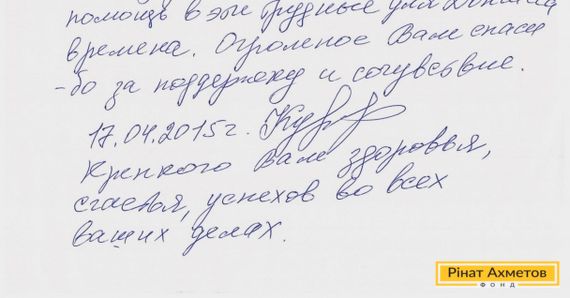 помощь в эти трудные для Донбасса
времена. Огромное Вам спаси
-бо за поддержку и сочувствие.
17.04.2015г.
Крепкого Вам здоровья,
счастья, успехов во всех
ваших делах.
Рінат Ахметов
ФОНД